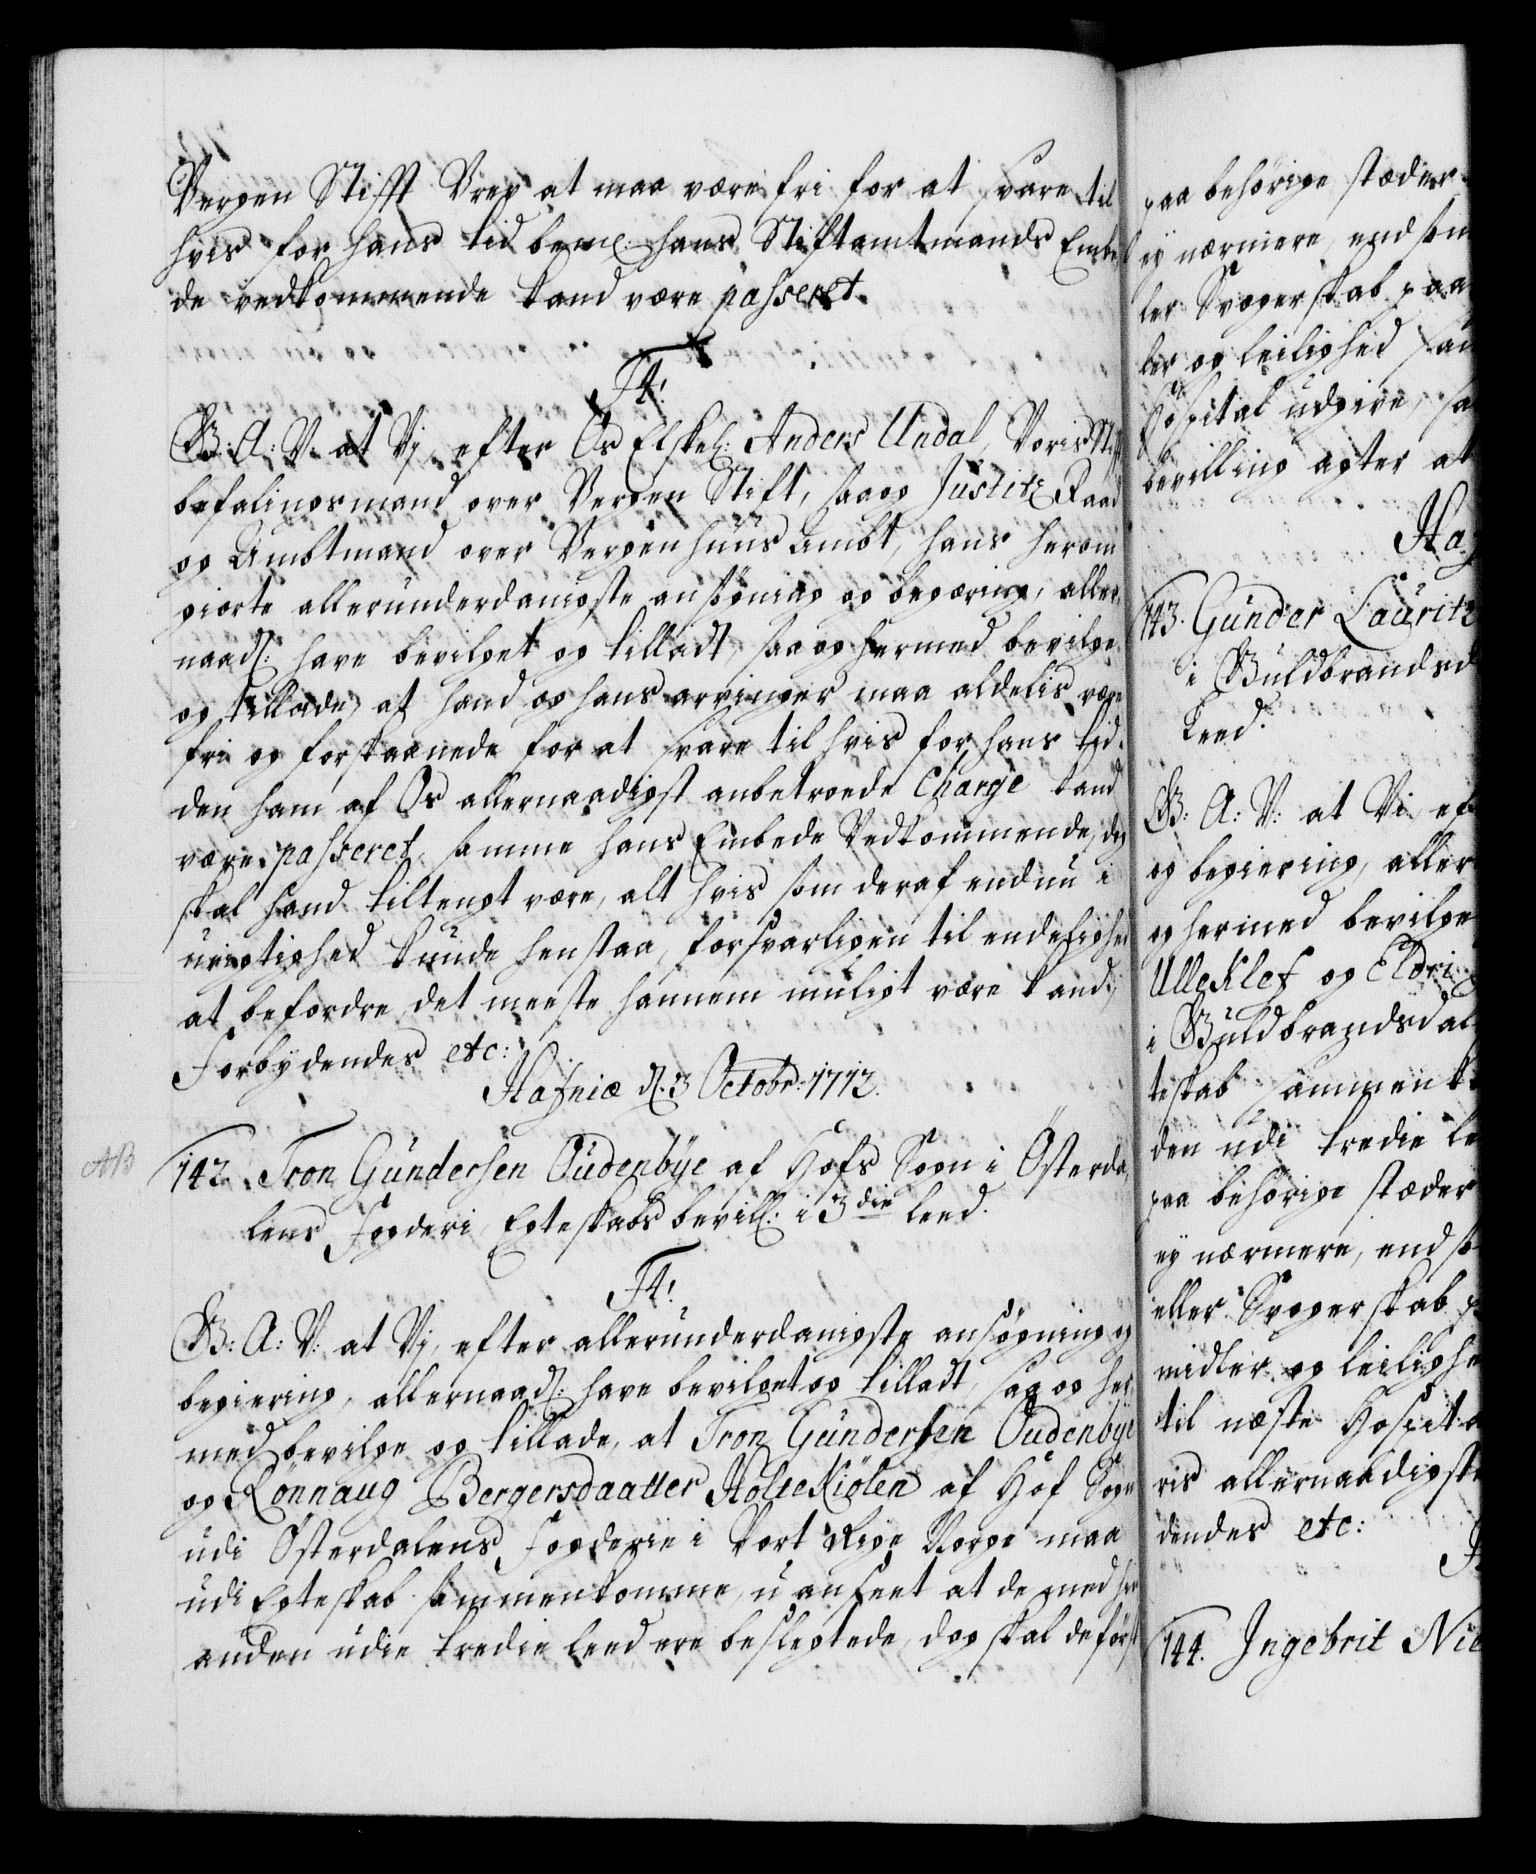 Bergen Stifft Brev at maa være fri for at svare til
hvis for hans tid bem: hans Stiftamtmands Embe
de vedkommende kand være passeret.
F4!
G: A: V: at Vj, efter Os Elskel: Anders Undal, Voris Stift
befalingsmand over Bergen Stift, saa og Justitz Raad
og Ambtmand over Bergenhuus Ambt, hans herom
giorte allerunderdanigste ansøgning og begæring, aller
naad: have bevilget og tilladt, saa og hermed bevilge
og tillade, at hand og hans arvinger maa aldelis være
fri og forskaanede for at svare til hvis for hans tid
den ham af Os allernaadigst anbetroede Charge kand
være passeret, samme hans Embede Vedkommende, dog
skal hand tiltengt være, alt hvis som deraf endnu i
urigtighed kunde henstaa, forsvarligen til endelighed
at befordre, det meeste hannem muligt være kand.
Forbydendes etc:
Hafniæ d. 3 Octobr: 1712.
AB
142. Tron Gundersen Oudenbÿe af Hofs Sogn i Österda
lens Fogderi, Egteskabs bevill: i 3die Leed.
F4!
G: A: V: at Vj, efter allerunderdanigste ansøgning og
begiering, allernaad: have bevilget og tilladt, saa og her
med bevilge og tillade, at Tron Gundersen Oudenbÿe
og Rönnaug Bergersdaatter Holtekiölen af Hof Sogn
udi Österdalens Fogderie i Vort Rige Norge maa
udi Egteskab sammenkomme, uanseet at de med hin
anden udi tredie leed ere beslegtede, dog skal de först
paa behörige stæder
eÿ nærmere, end som
ler Svogerskab paa
ler og leilighed
Hospital udgive, sa
bevilling agter at
Ha
143. Gunder Lauritz
i Guldbrandsd
Leed.
G: A: V: at Vi, ef
og begiering, aller
og hermed bevilge
Ulleklef og Eldri
i Guldbrandsdal
teskab sammenk
den udi tredie le
paa behörige stæder
eÿ nærmere, end so
eller Svogerskab p
midler og leilighe
til næste Hospita
ris allernaadigste
dendes etc:
144. Ingebrit Nie